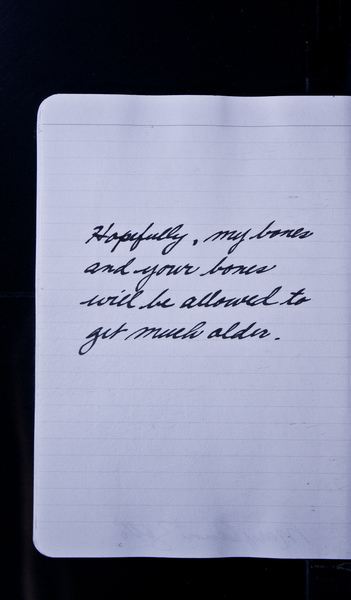 Hopefully, my bones
and your bones
will be allowed to
get much older.